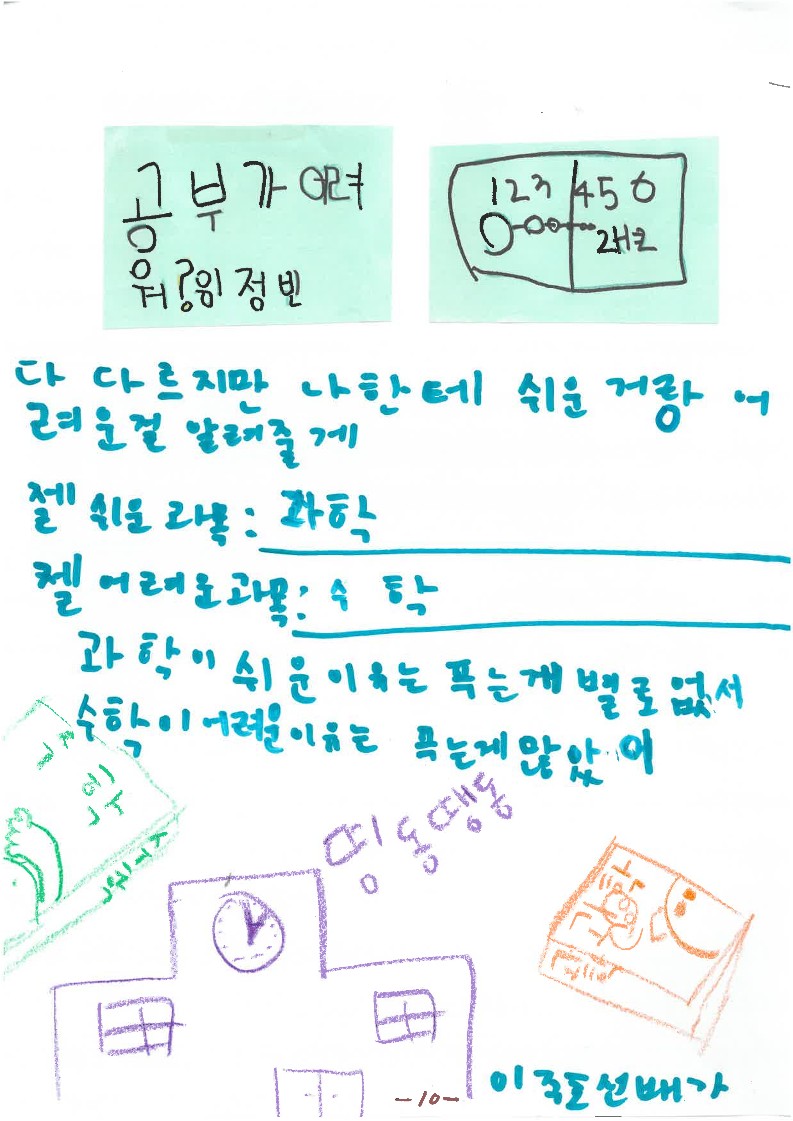 공부가 어려
워? 위정빈
123 456
다 다르지만 나한테 쉬운 거랑 어
려운걸 알려줄게
젤 쉬운 과목: 과학
젤 어려운과목: 수학
과학이 쉬운이유는 푸는게 별로 없서
수학이 어려운이유는 푸는게 많았어
국어
띵동땡동
과학
-10-
선배가